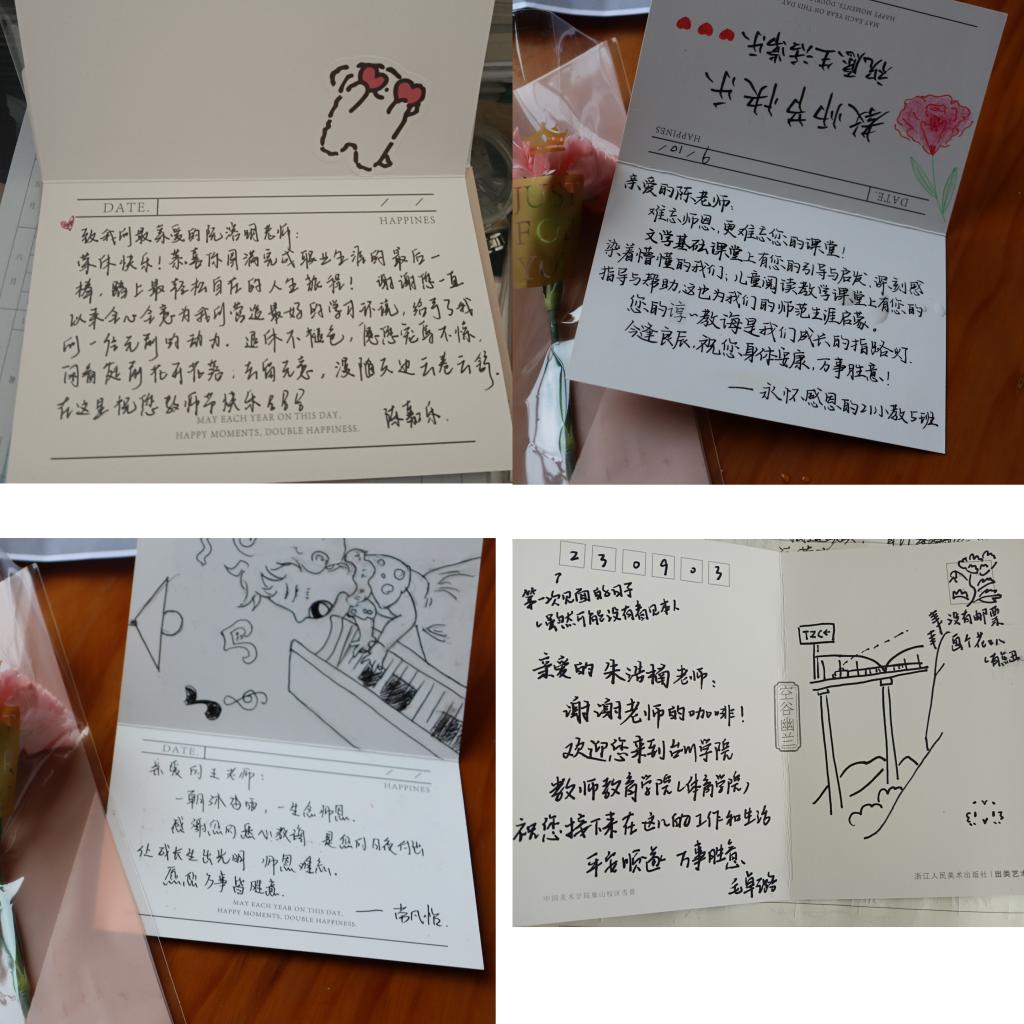 DATE.
/ /
HAPPINES
致我们最亲爱的阮浩明老师:
荣休快乐!恭喜你圆满完成职业生涯的最后一
棒,踏上最轻松自在的人生旅程! 谢谢您一直
以来全心全意为我们营造最好的学习环境,给予了我
们一往无前的动力。退休不褪色,愿您宠辱不惊,
闲看庭前花开花落,去留无意,漫随天边云卷云舒。
在这里祝您教师节快乐
MAY EACH YEAR ON THIS DAY.
HAPPY MOMENTS, DOUBLE HAPPINESS.
陈嘉乐.
MAY EACH YEAR ON THIS DAY
HAPPY MOMENTS, DOUBLE
祝愿生活常乐、
教师节快乐、
HAPPINES
9/10/
DATE.
亲爱的陈老师:
难忘师恩,更难忘您的课堂!
文学基础课堂上有您的引导与启发,深刻感
染着懵懂的我们,儿童阅读教学课堂上有您的
指导与帮助,这也为我们的师范生涯启蒙。
您的谆谆教诲是我们成长的指路灯.
今逢良辰,祝您身体安康,万事胜意!
— 永怀感恩的21小教5班
JUST
FOR
YOU
DATE.
/ /
HAPPINES
亲爱的王老师:
一朝沐杏雨,一生念师恩.
感谢您的悉心教诲,是您的日夜付出
让成长生出光明 师恩难忘.
愿您万事皆胜意.
MAY EACH YEAR ON THIS DAY.
HAPPY MOMENTS, DOUBLE HAPPINESS.
230903
第一次见面的日子
虽然可能没有看见本人
亲爱的 朱浩楠老师:
谢谢老师的咖啡!
欢迎您来到台州学院
教师教育学院(体育学院)
祝您接下来在这儿的工作和生活
平安顺遂 万事胜意
毛卓
中国美术学院象山校区雪景
空谷幽兰
TZC
没有邮票
画个花儿
有点丑
浙江人民美术出版社|出类艺术